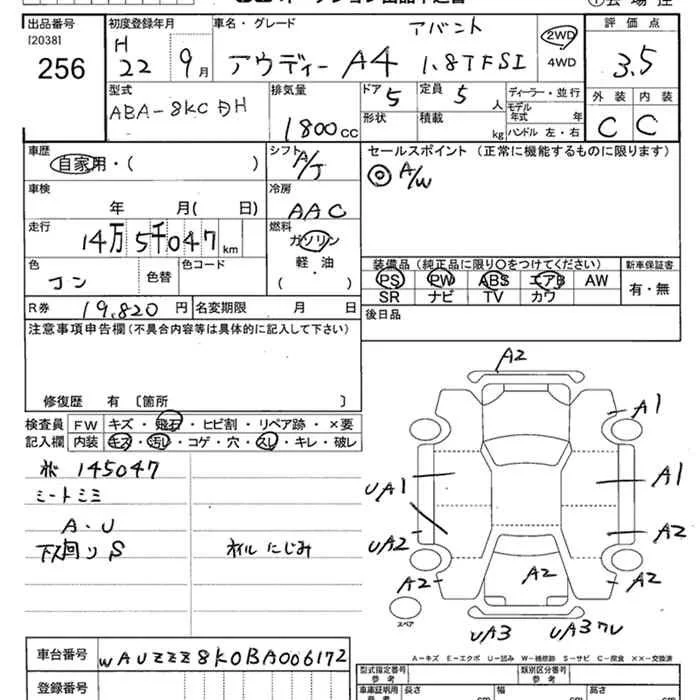 出品番号 初度登録年月 車名・グレード アバント 2WD 評価点
120381 H
256 22 9月 アウディー A4 1.8TFSI 4WD 3.5
型式 排気量 ドア 定員 ディーラー・並行 外装 内装
ABA-8KCDH 1800cc 5 5人 モデル年式 年 C C
形状 積載 kg ハンドル 左・右
車歴 シフト セールスポイント (正常に機能するものに限ります)
自家用・( ) A/T ◎ A/W
車検 冷房
年 月( 日) AAC
走行 燃料
14万5千047km ガソリン
色 色替 色コード 軽・油 装備品(純正品に限り○をつけてください) 新車保証書
コン ( ) PS PW ABS エアB AW 有・無
SR ナビ TV カワ
R券 19,820円 名変期限 月 日 後日品
注意事項申告欄(不具合内容等は具体的に記入して下さい)
修復歴 有 〔箇所 〕
検査員 FW キズ・飛石・ヒビ割・リペア跡・×要
記入欄 内装 キズ・汚レ・コゲ・穴・スレ・キレ・破レ
145047
ミートミミ
A・U
下回りS オイルにじみ
A2
A1
UA1 A1
UA2 A2
A2 A2 A2
スペア UA3 UA3
A-キズ E-エクボ U-凹み W-補修跡 S-サビ C-腐食 ××-交換済
車台番号 WAUZZZ8K0BA006172
登録番号
型式指定番号 類別区分番号
参考
車庫証明用 長さ 幅 高さ
参考 cm cm cm